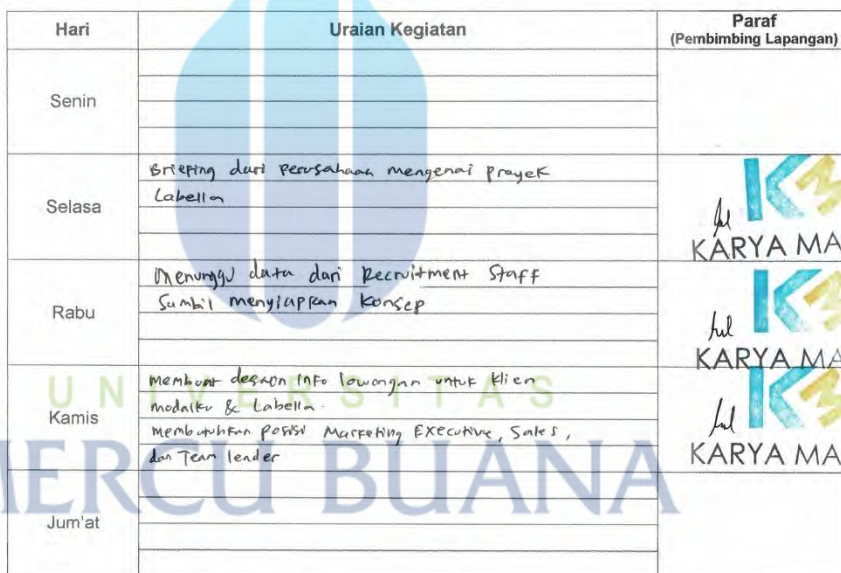 Hari Uraian Kegiatan Paraf
(Pembimbing Lapangan)
Senin
Selasa
Briefing dari perusahaan mengenai proyek
Labella
KARYA MA
Rabu
Menunggu data dari Recruitment Staff
Sambil menyiapkan Konsep
KARYA MA
Kamis
membuat desain info lowongan untuk klien
modalku & Labella.
membutuhkan posisi Marketing Executive, Sales,
dan Team leader
KARYA MA
Jum'at
UNIVERSITAS
MERCU BUANA